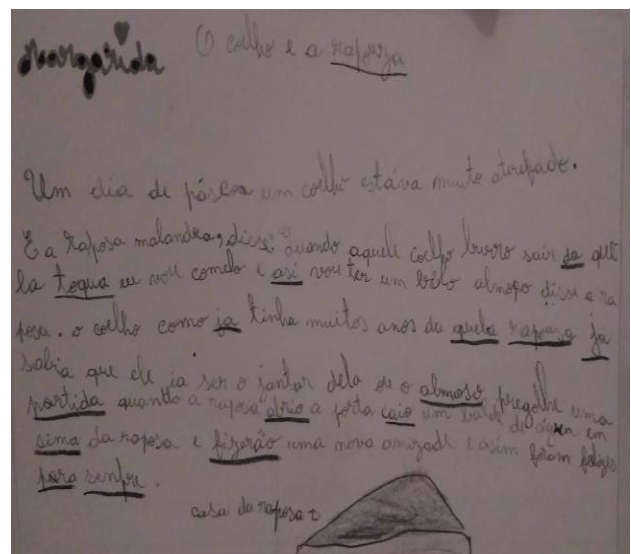 Margarida
O coelho e a rapouza
Um dia de páscoa um coelho estáva muito atarefado.
E a raposa malandra, disse: quando aquele coelho burro sair da que
la toqua eu vou comelo e asi vou ter um belo almoço disse a ra
posa. o coelho como ja tinha muitos anos da quela rapousa ja
sabia que ele ia ser o jantar dela ou o almoso pregolhe uma
partida quando a raposa abrio a porta caio um balde de água em
sima da raposa e fizerão uma nova amizade e asim foram felizes
para senpre.
casa da raposa